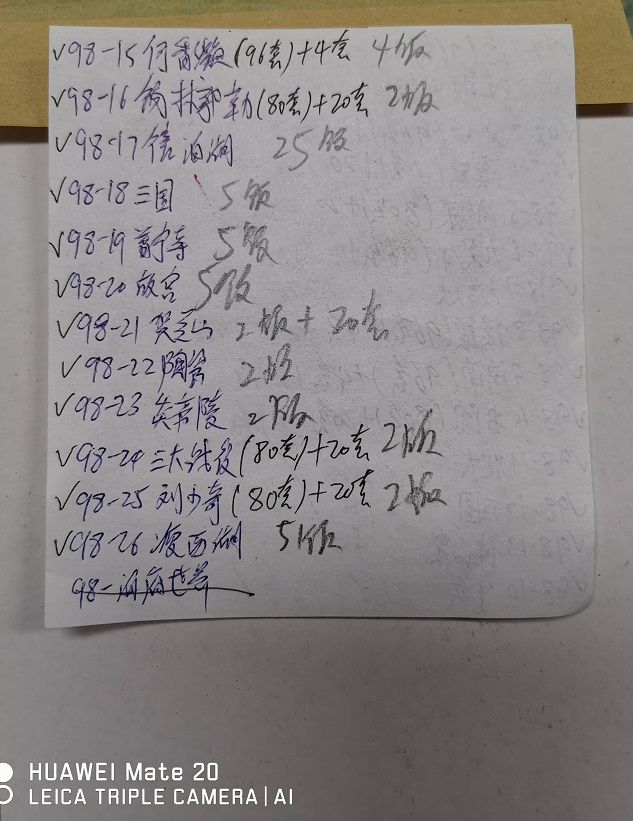 √98-15 何香凝(96套)+4套 4版
√98-16 锡林郭勒(80套)+20套 2版
√98-17 镜泊湖 25版
√98-18 三国 5版
√98-19 普宁寺 5版
√98-20 故宫 5版
√98-21 贺兰山 2版+20套
√98-22 陶瓷 2版
√98-23 炎帝陵 2版
√98-24 三大战役(80套)+20套 2版
√98-25 刘少奇(80套)+20套 2版
√98-26 瘦西湖 5版
98-
HUAWEI Mate 20
LEICA TRIPLE CAMERA | AI